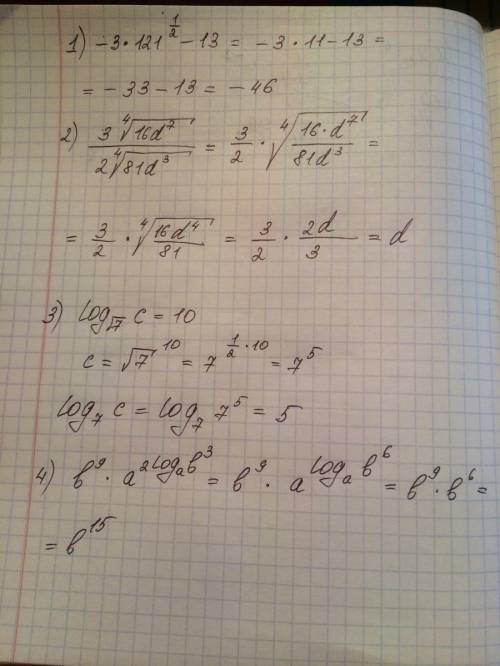 1) -3·121^{1/2} - 13 = -3·11-13 =
= -33-13 = -46
2) \frac{3\sqrt[4]{16d^7}}{2\sqrt[4]{81d^3}} = \frac{3}{2} · \sqrt[4]{\frac{16·d^7}{81d^3}} =
= \frac{3}{2} · \sqrt[4]{\frac{16d^4}{81}} = \frac{3}{2} · \frac{2d}{3} = d
3) log_{√7} c = 10
c = √7^{10} = 7^{\frac{1}{2}·10} = 7^5
log_7 c = log_7 7^5 = 5
4) b^9 · a^{2log_a b^3} = b^9 · a^{log_a b^6} = b^9 · b^6 =
= b^{15}